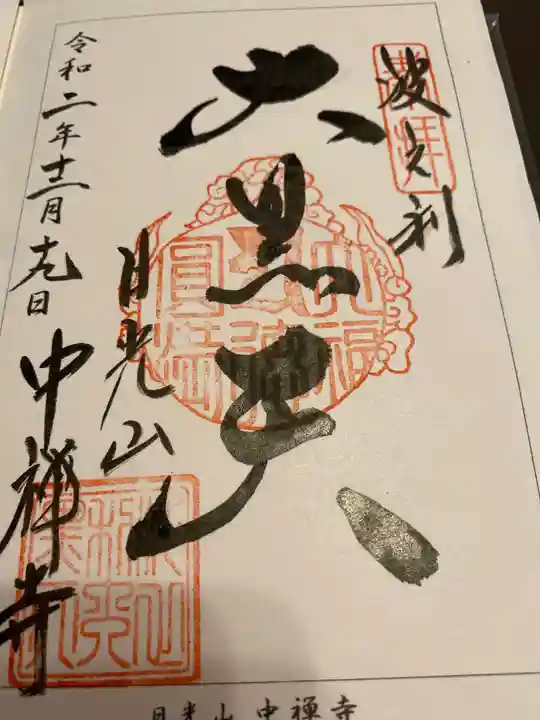 奉拝
波之利
大黒天
日光山
中禅寺
令和二年十二月十九日
日光山 中禅寺